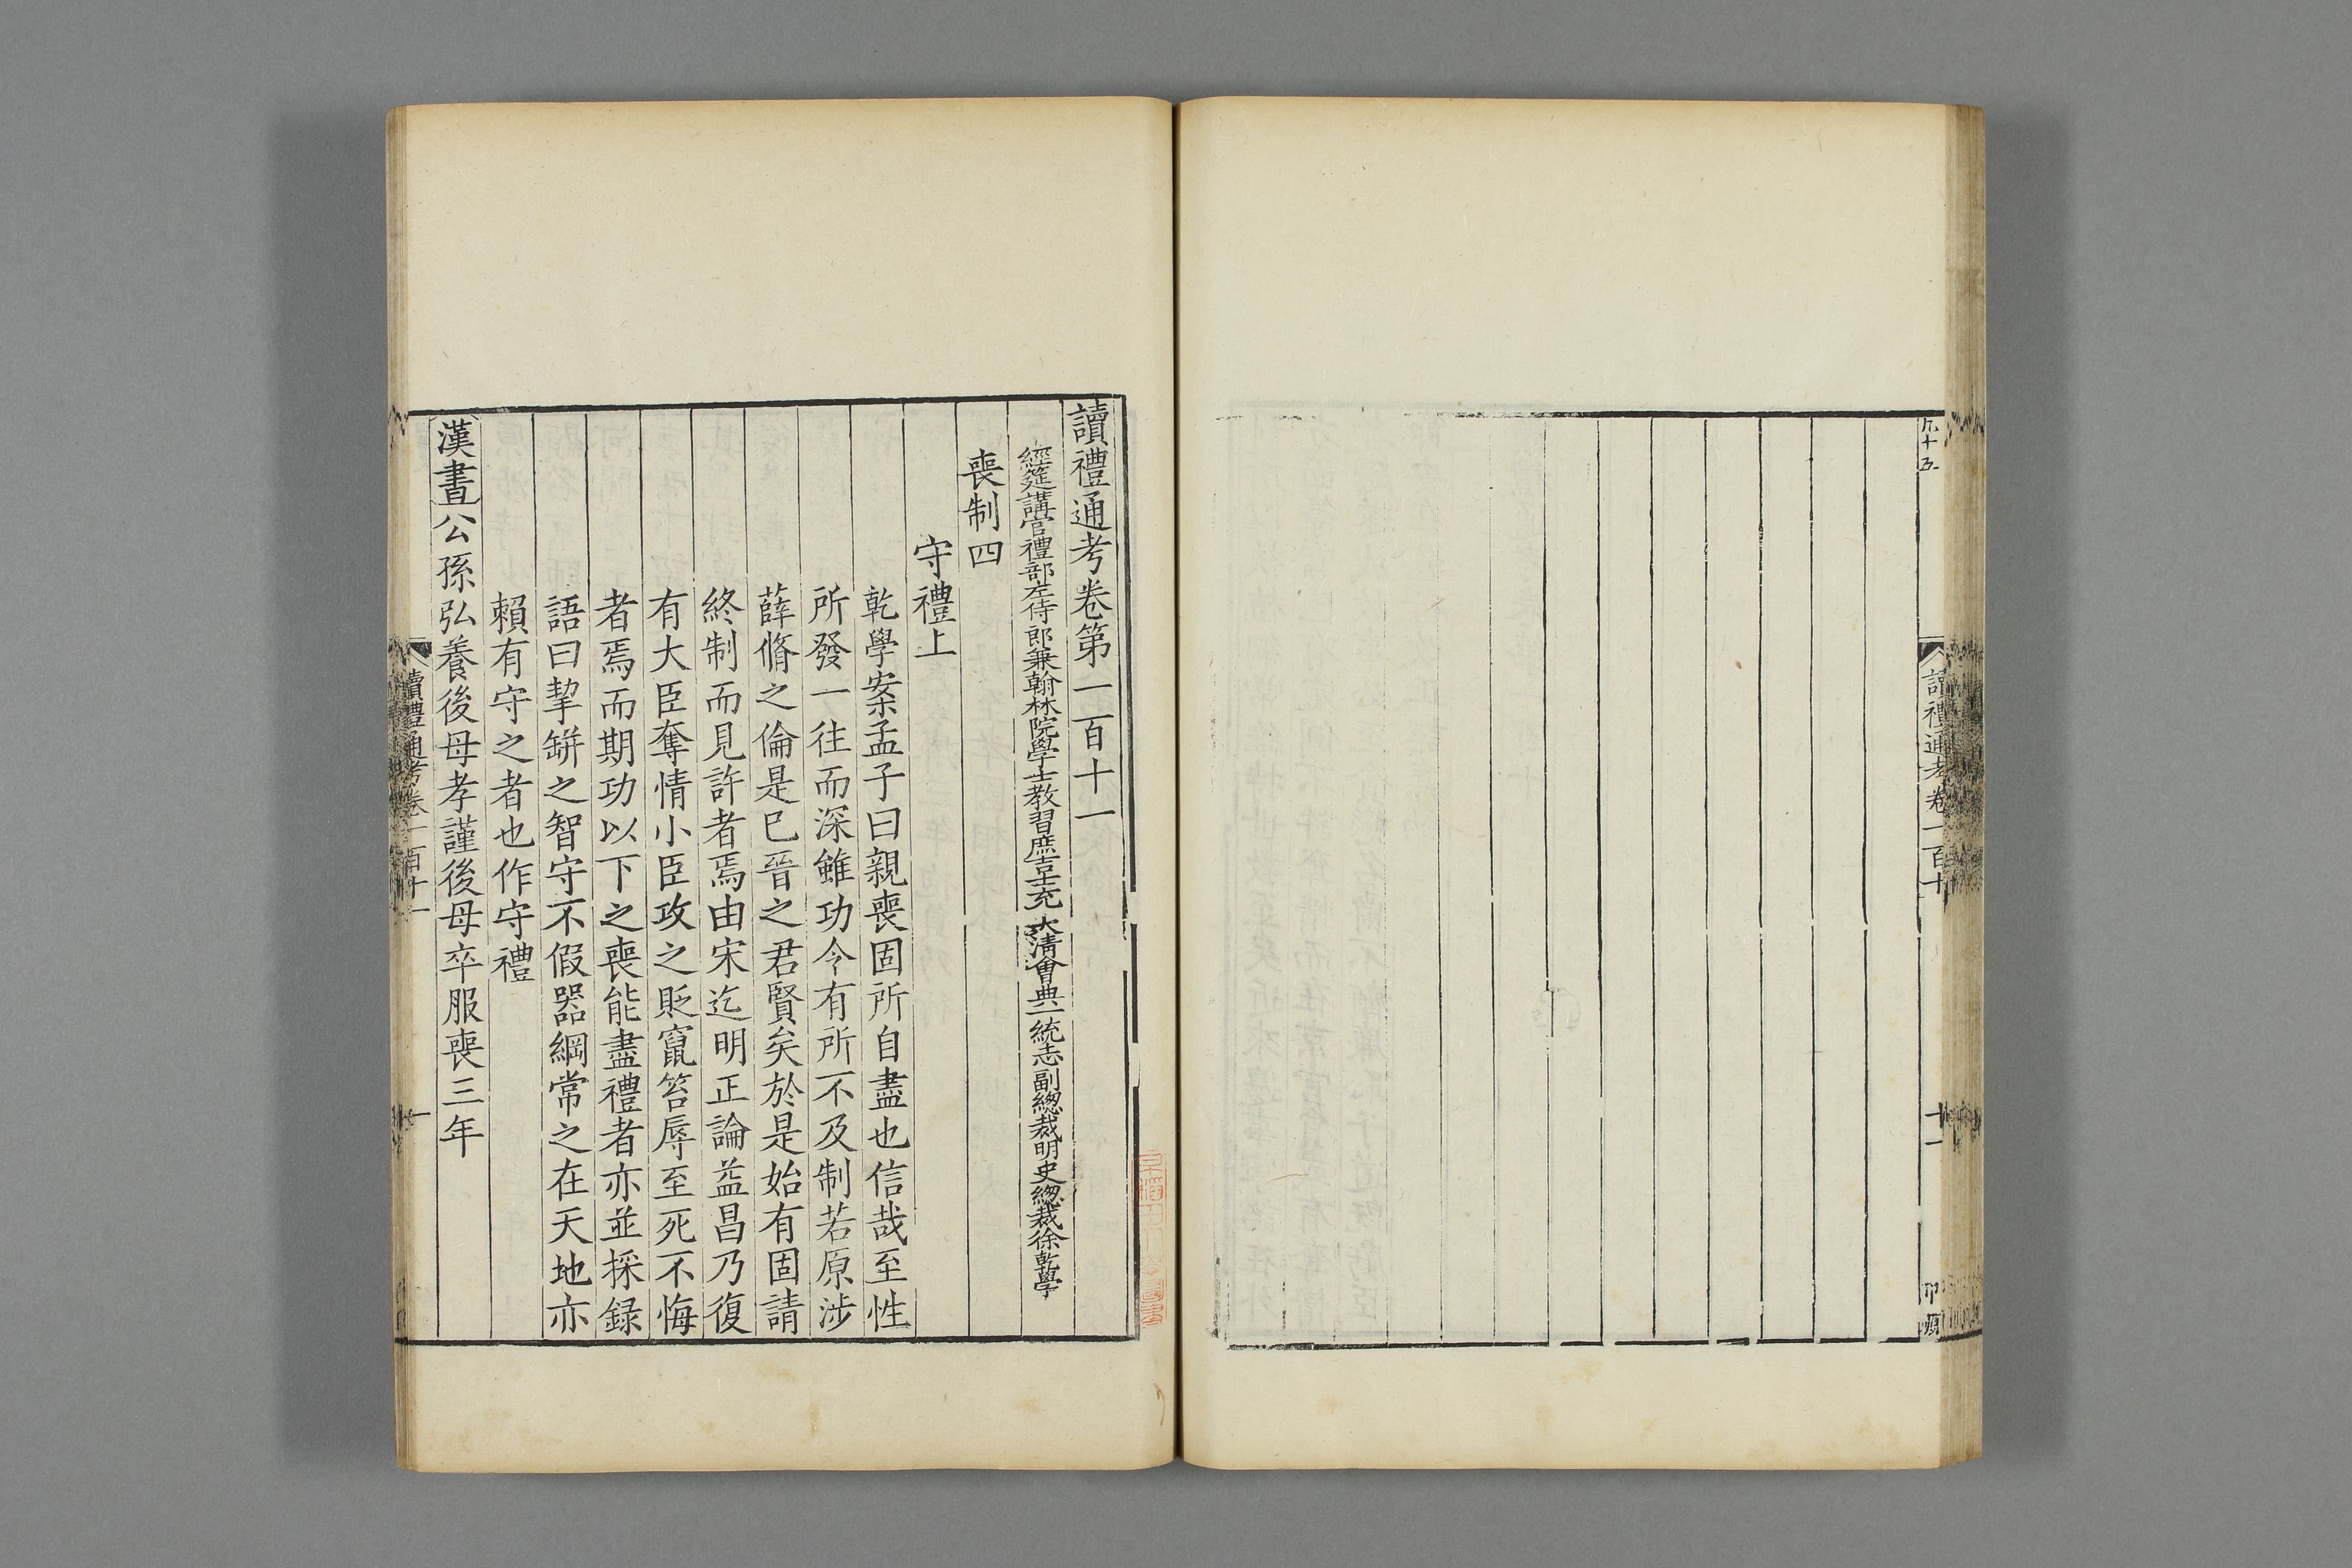 讀禮通考卷一百十
十一
讀禮通考卷第一百十一
經筵講官禮部左侍郎兼翰林院學士教習庶吉士充大淸會典一統志副總裁明史總裁徐乾學
喪制四
守禮上
乾學案孟子曰親喪固所自盡也信哉至性
所發一往而深雖功令有所不及制若原涉
薛脩之倫是已晉之君賢矣於是始有固請
終制而見許者焉由宋迄明正論益昌乃復
有大臣奪情小臣攻之貶竄笞辱至死不悔
者焉而期功以下之喪能盡禮者亦並採録
語曰挈缾之智守不假器綱常之在天地亦
賴有守之者也作守禮
漢書公孫弘養後母孝謹後母卒服喪三年
讀禮通考卷一百十一
一